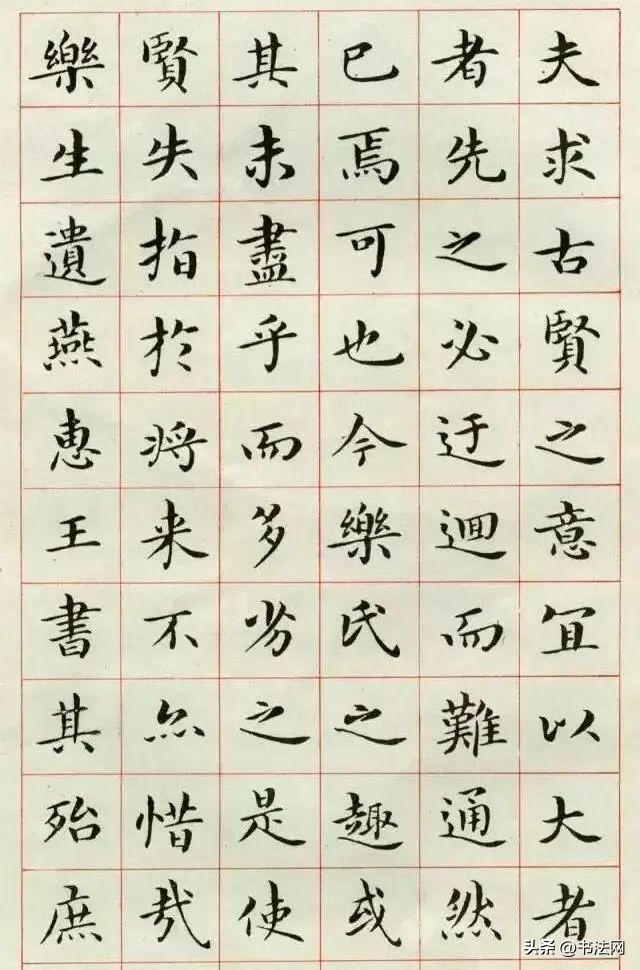 夫求古賢之意冝以大者
者先之必迂迴而難通然
已焉可也今樂氏之趣或
其未盡乎而多劣之是使
賢失指於將来不亦惜哉
樂生遺燕惠王書其殆庶
头条 @书法网